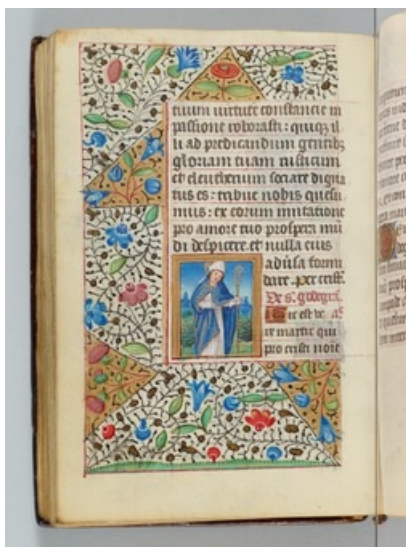 tuum virtute constancie in
passione roborasti: quiqz il
li ad predicandum gentibz
gloriam tuam rusticum
et eleutherium sociare digna
tus es: tribue nobis quesu
mus: ex eorum imitatione
pro amore tuo prospera mū
di despicere et nulla eius
adūsa formi
dare. per crist.
De s.
ic est ve
re martir qui
pro cristi noīe